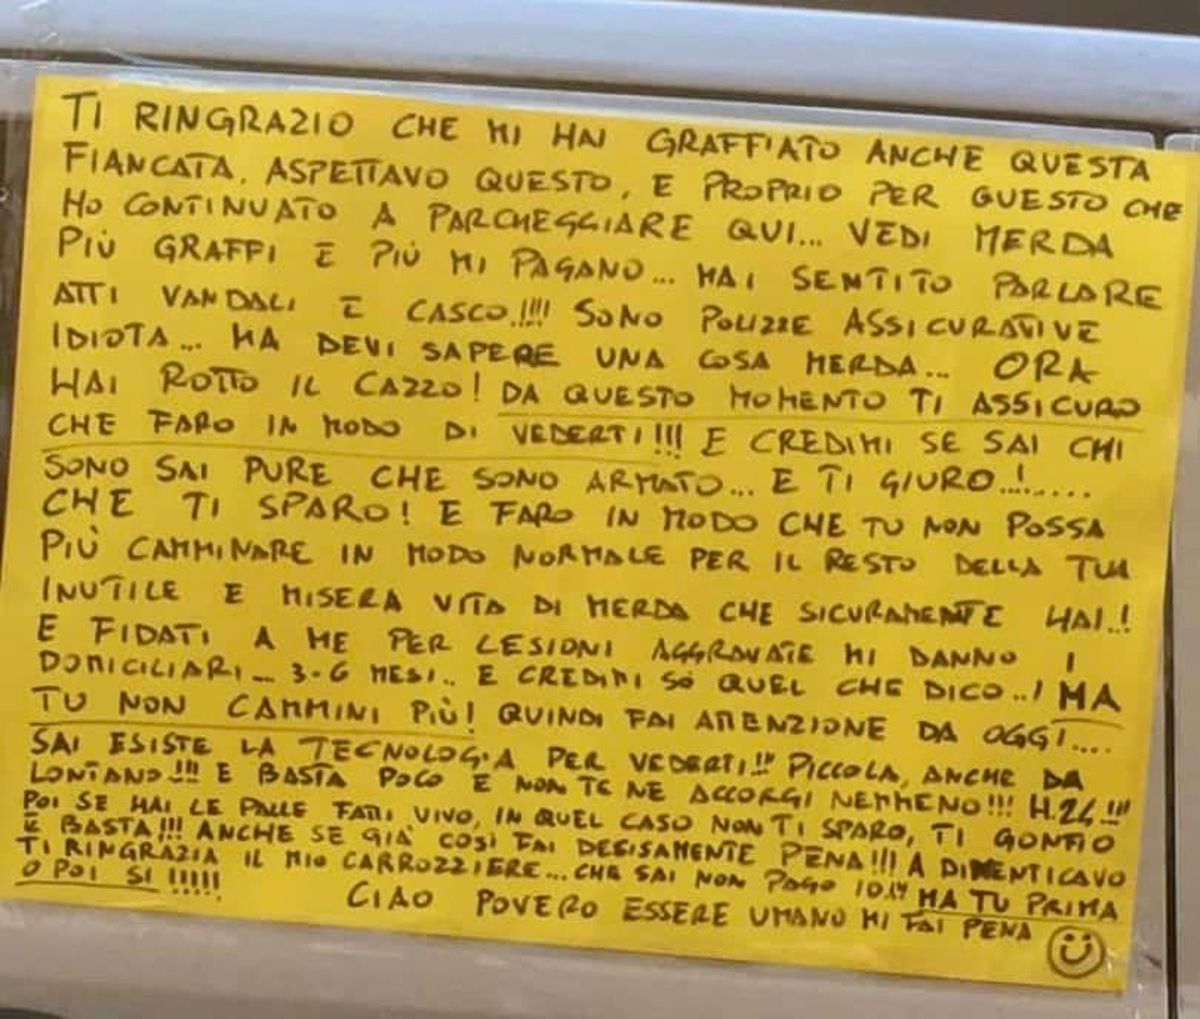 TI RINGRAZIO CHE MI HAI GRAFFIATO ANCHE QUESTA
FIANCATA. ASPETTAVO QUESTO, E PROPRIO PER QUESTO CHE
HO CONTINUATO A PARCHEGGIARE QUI... VEDI MERDA
PIÙ GRAFFI E PIÙ MI PAGANO... MAI SENTITO PARLARE
ATTI VANDALI E CASCO!!!! SONO POLIZZE ASSICURATIVE
IDIOTA... MA DEVI SAPERE UNA COSA MERDA... ORA
HAI ROTTO IL CAZZO! DA QUESTO MOMENTO TI ASSICURO
CHE FARO IN MODO DI VEDERTI!!! E CREDIMI SE SAI CHI
SONO SAI PURE CHE SONO ARMATO... E TI GIURO...!.....
CHE TI SPARO! E FARO IN MODO CHE TU NON POSSA
PIÙ CAMMINARE IN MODO NORMALE PER IL RESTO DELLA TUA
INUTILE E MISERA VITA DI MERDA CHE SICURAMENTE HAI..!
E FIDATI A ME PER LESIONI AGGRAVATE MI DANNO I
DOMICILIARI... 3-6 MESI.. E CREDIMI SO QUEL CHE DICO..! MA
TU NON CAMMINI PIÙ! QUINDI FAI ATTENZIONE DA OGGI....
SAI ESISTE LA TECNOLOGIA PER VEDERTI!!! PICCOLA, ANCHE DA
LONTANO!!! E BASTA POCO E NON TE NE ACCORGI NEMMENO!!! H.24!!!
POI SE HAI LE PALLE FATTI VIVO, IN QUEL CASO NON TI SPARO, TI GONFIO
E BASTA!!! ANCHE SE GIÀ COSÌ FAI DECISAMENTE PENA!!! A DIMENTICAVO
TI RINGRAZIA IL MIO CARROZZIERE... CHE SAI NON PAGO IO!! MA TU PRIMA
O POI SI !!!!!
CIAO POVERO ESSERE UMANO MI FAI PENA